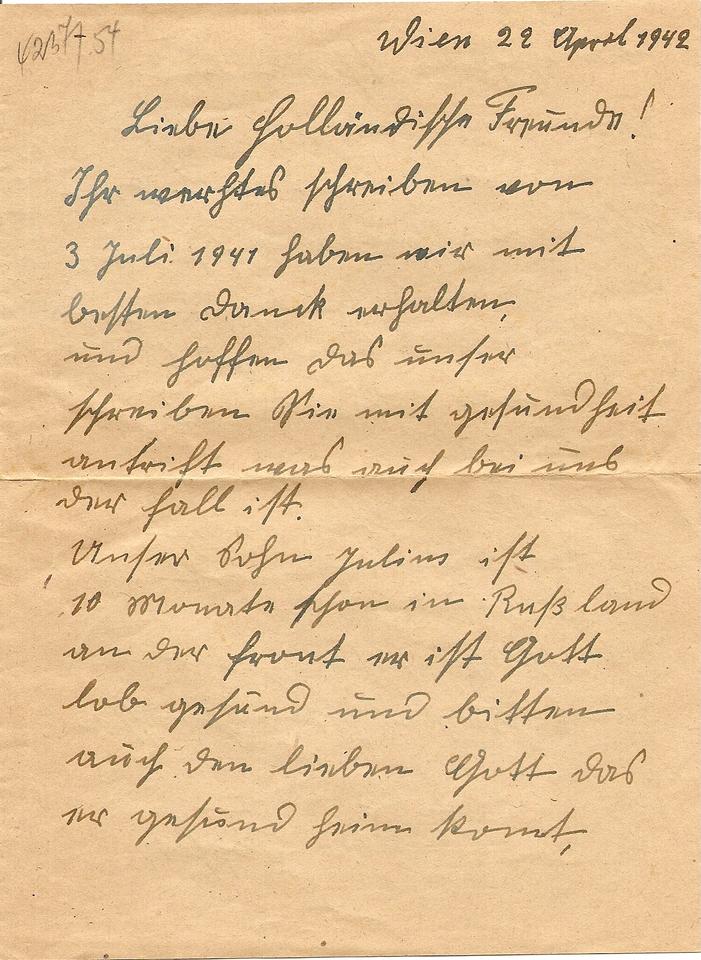 Wien 22 April 1942
Liebe Holländische Freunde!
Ihr werhtes schreiben von
3 Juli 1941 haben wir mit
besten Danck erhalten,
und hoffen das unser
schreiben Sie mit gesundheit
antrift was auch bei uns
der fall ist.
Unser Sohn Julius ist
10 Monate schon in Rußland
an der front er ist Gott
lob gesund und bitten
auch den lieben Gott das
er gesund heim komt,